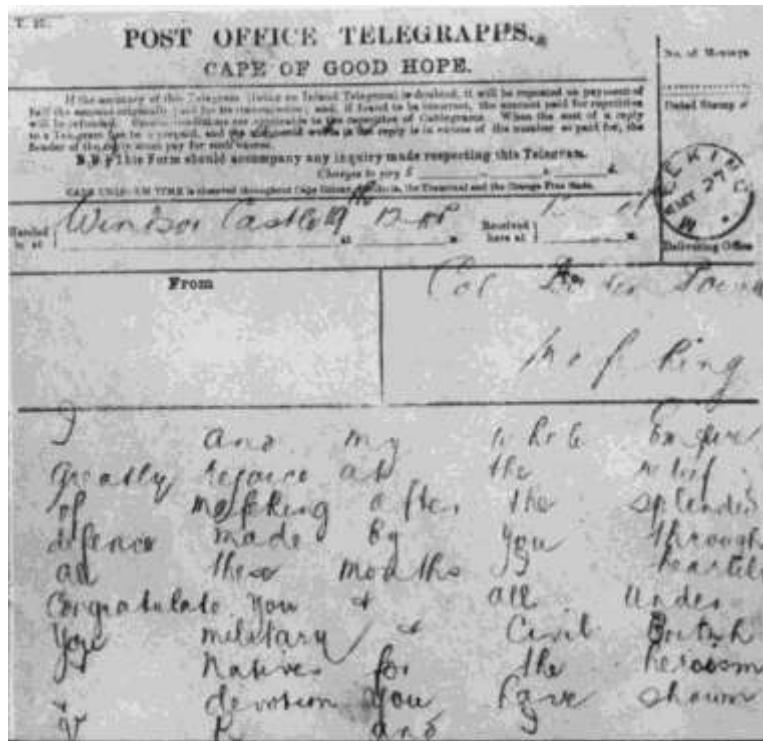 POST OFFICE TELEGRAPHS.
CAPE OF GOOD HOPE.
No. of Message
If the accuracy of this Telegram (being an Inland Telegram) is doubted, it will be repeated on payment of
half the amount originally paid for its transmission; and, if found to be incorrect, the amount paid for repetition
will be refunded. conditions are applicable to the repetition of Cablegrams. When the cost of a reply
to a Telegram has been prepaid, and the number of words in the reply is in excess of the number so paid for, the
Sender of the reply must pay for such excess.
Dated Stamp of
N.B. This Form should accompany any inquiry made respecting this Telegram.
Charges to pay £ s. d.
MY 27
Handed in at Windsor Castle 19 at m. Received here at m.
Delivering Office
From
To
Col Baden Powell
Mafeking
I and my whole Empire
greatly rejoice at the relief
of Mafeking after the splendid
defence made by you through
all these months I heartily
congratulate you & all under
you military & Civil British
& Natives for the heroism
& devotion you have shown
V R and I